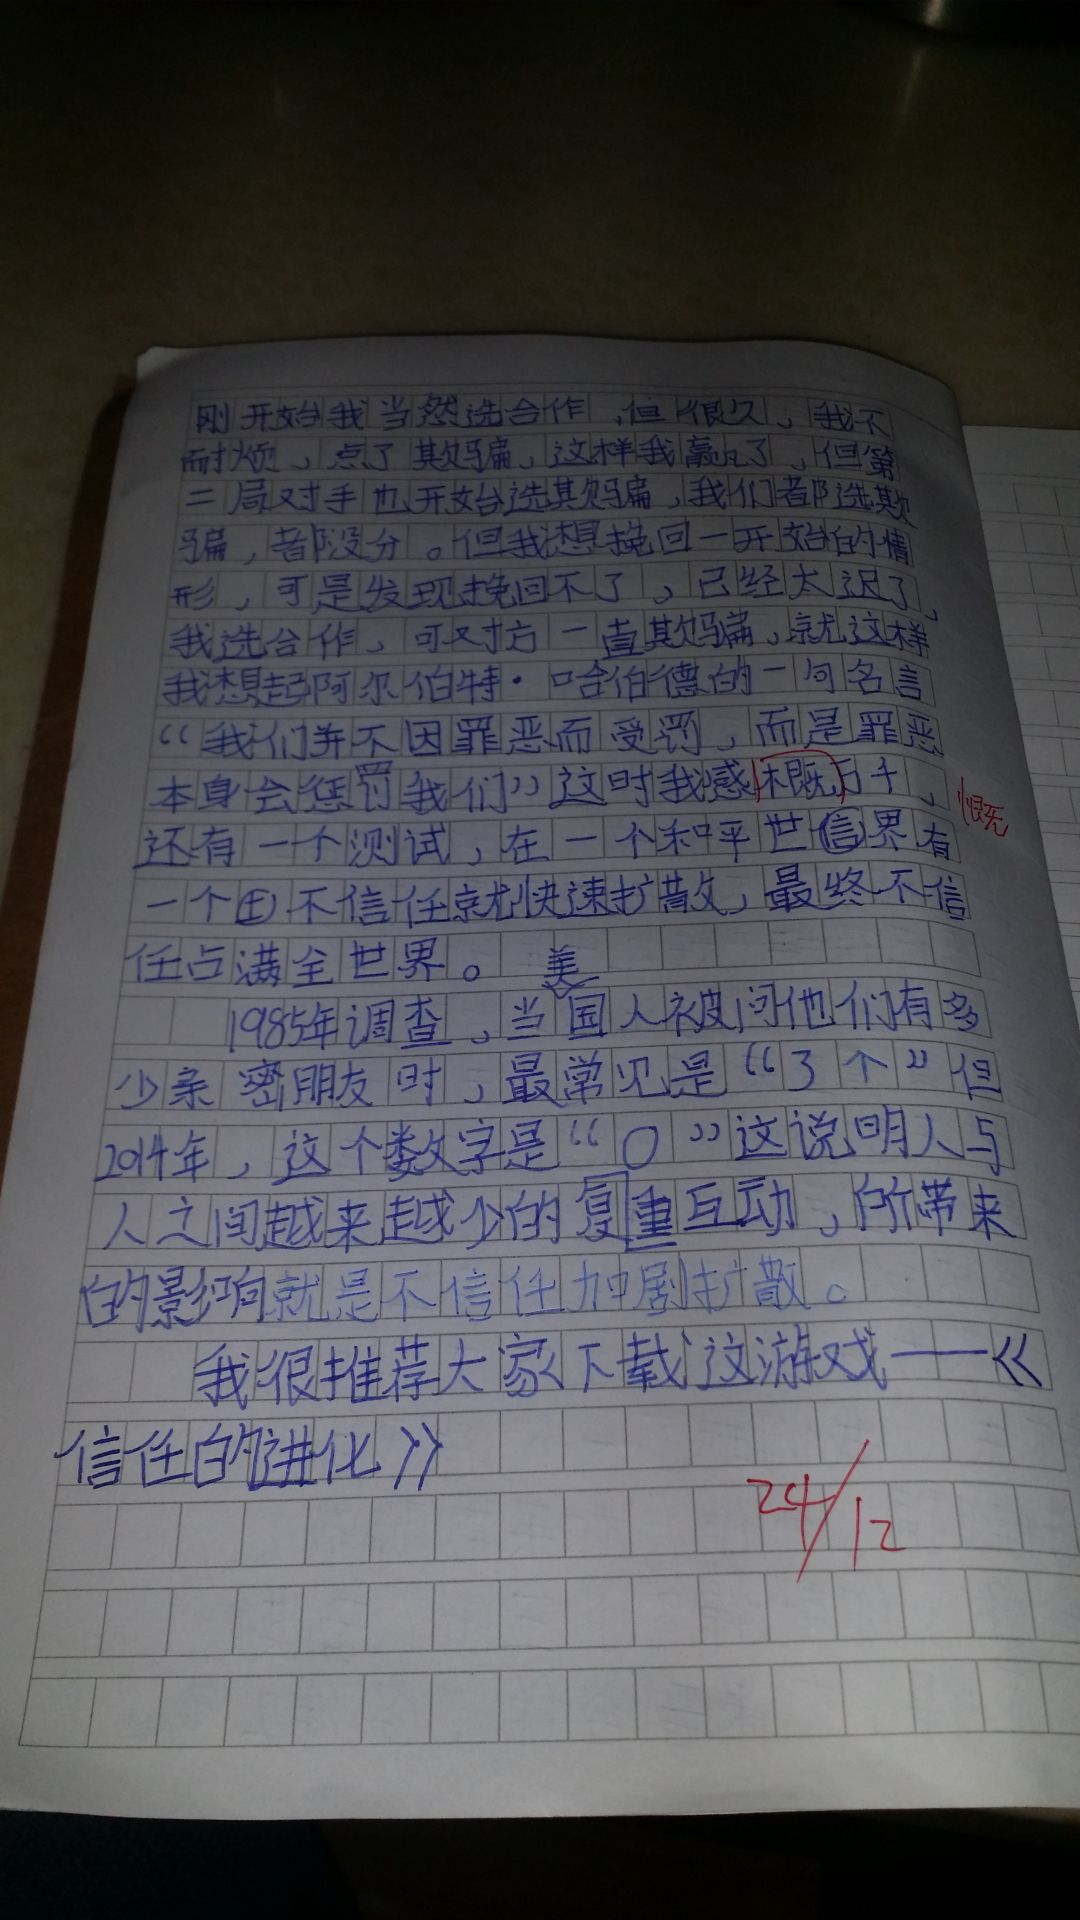 刚开始我当然选合作，但很久，我不
耐烦，点了欺骗，这样我赢了，但第
二局对手也开始选欺骗，我们都选欺
骗，都没分。但我想挽回一开始的情
形，可是发现挽回不了，已经太迟了，
我选合作，可对方一直欺骗，就这样
我想起阿尔伯特·哈伯德的一句名言
“我们并不因罪恶而受罚，而是罪恶
本身会惩罚我们”这时我感概万千，
慨
还有一个测试，在一个和平世信界有
一个不信任就快速扩散，最终不信
任占满全世界。
1985年调查，当美国人被问他们有多
少亲密朋友时，最常见是“3个”但
2014年，这个数字是“0”这说明人与
人之间越来越少的复重互动，所带来
的影响就是不信任加剧扩散。
我很推荐大家下载这游戏——《
信任的进化》
24/12